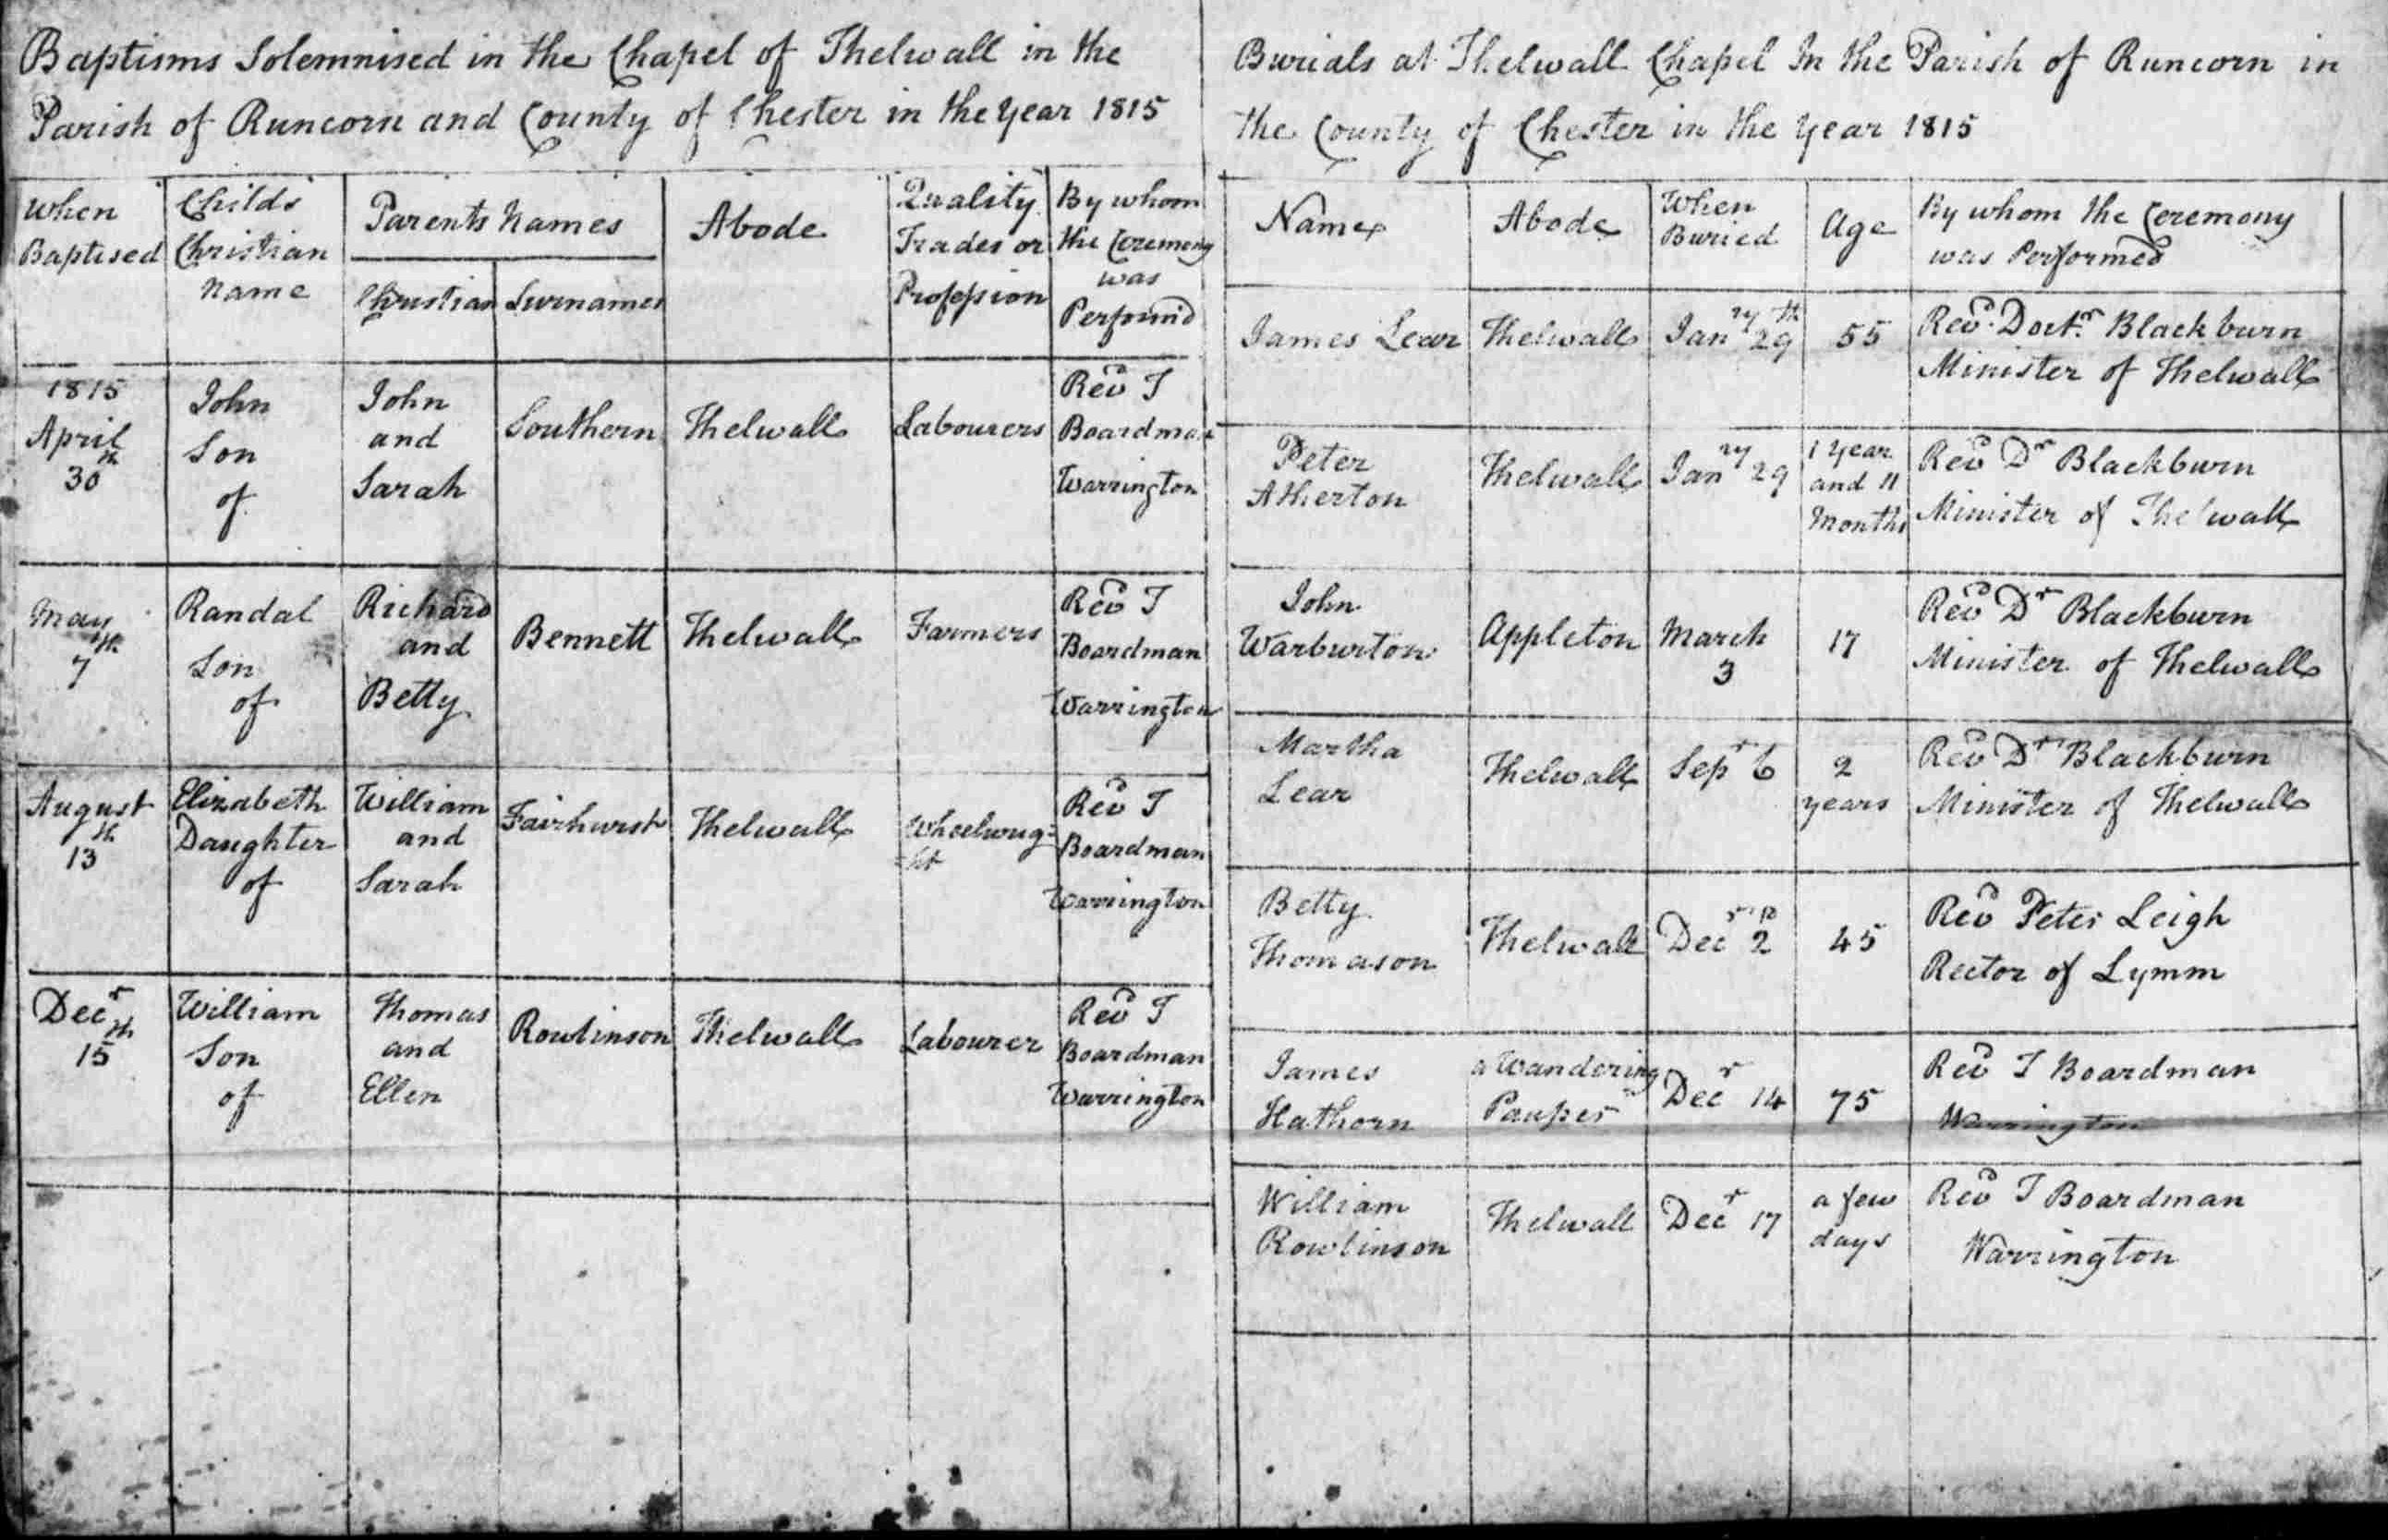 Baptisms Solemnised in the Chapel of Thelwall in the
Parish of Runcorn and County of Chester in the Year 1815
When Baptised
Child's Christian Name
Parents Names
Christian
Surnames
Abode
Quality Trades or Profession
By whom the Ceremony was Performd
1815 April 30th
John Son of
John and Sarah
Southern
Thelwall
Labourers
Revd T Boardman Warrington
May 7th
Randal Son of
Richard and Betty
Bennett
Thelwall
Farmers
Revd T Boardman Warrington
August 13th
Elizabeth Daughter of
William and Sarah
Fairhurst
Thelwall
Wheelwrig=
=ht
Revd T Boardman Warrington
Decr 15th
William Son of
Thomas and Ellen
Rowlinson
Thelwall
Labourer
Revd T Boardman Warrington
Burials at Thelwall Chapel In the Parish of Runcorn in
the County of Chester in the Year 1815
Names
Abode
When Buried
Age
By whom the Ceremony was Performed
James Lear
Thelwall
Janry 29th
55
Revd Doctr Blackburn
Minister of Thelwall
Peter Atherton
Thelwall
Janry 29
1 Year and 11 Months
Revd Dr Blackburn
Minister of Thelwall
John Warburton
Appleton
March 3
17
Revd Dr Blackburn
Minister of Thelwall
Martha Lear
Thelwall
Sepr 6
2 years
Revd Dr Blackburn
Minister of Thelwall
Betty Thomason
Thelwall
Decr 2d
45
Revd Peter Leigh
Rector of Lymm
James Hathorn
a Wandering Pauper
Decr 14
75
Revd T Boardman
Warrington
William Rowlinson
Thelwall
Decr 17
a few days
Revd T Boardman
Warrington